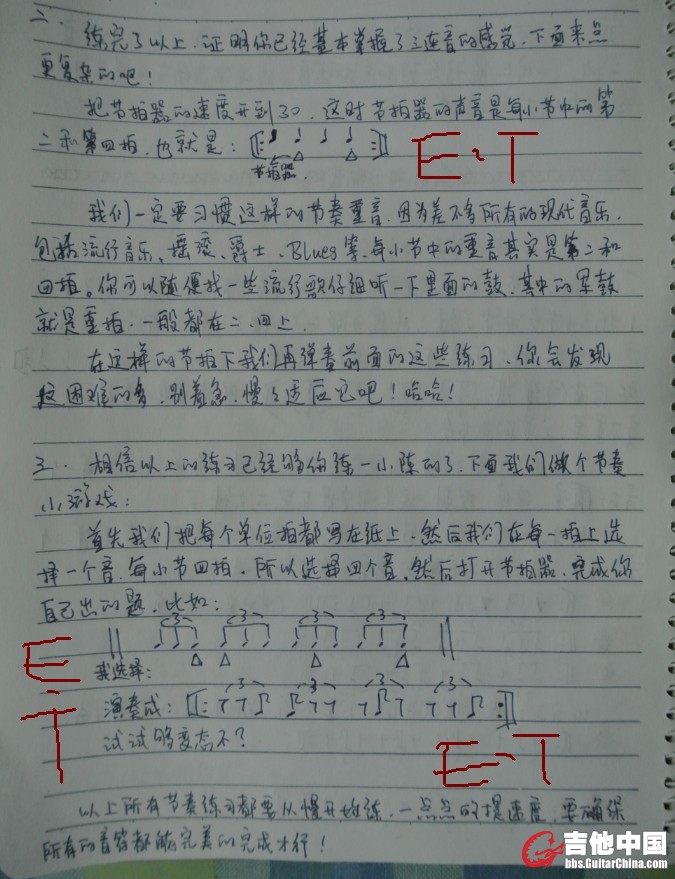 二.
练完了以上.证明你已经基本掌握了三连音的感觉.下面来点
更复杂的吧!
把节拍器的速度开到30.这时节拍器的声音是每小节中的第
二和第四拍.也就是:
节拍器.
E~T
我们一定要习惯这样的节奏重音.因为差不多所有的现代音乐.
包括流行音乐、摇滚、爵士、Blues等.每小节中的重音其实是第二和
四拍。你可以随便找一些流行歌仔细听一下里面的鼓.其中的军鼓
就是重拍.一般都在二.四上.
在这样的节拍下我们再弹奏前面的这些练习.你会发现
困难的多.别着急.慢慢适应它吧!哈哈!
三.相信以上的练习已经够你练一小阵的了.下面我们做个节奏
小游戏:
首先我们把每个单位拍都写在纸上.然后我们在每一拍上选
择一个音.每小节四拍.所以选择四个音.然后打开节拍器.完成你
自己出的题.比如:
3 3 3 3
E~T
我选择:
3 3 3 3
演奏成:
试试够变态不?
E~T
以上所有节奏练习都要从慢开始练.一点点的提速度.要确保
所有的音符都能完美的完成才行!
吉他中国
bbs.GuitarChina.com